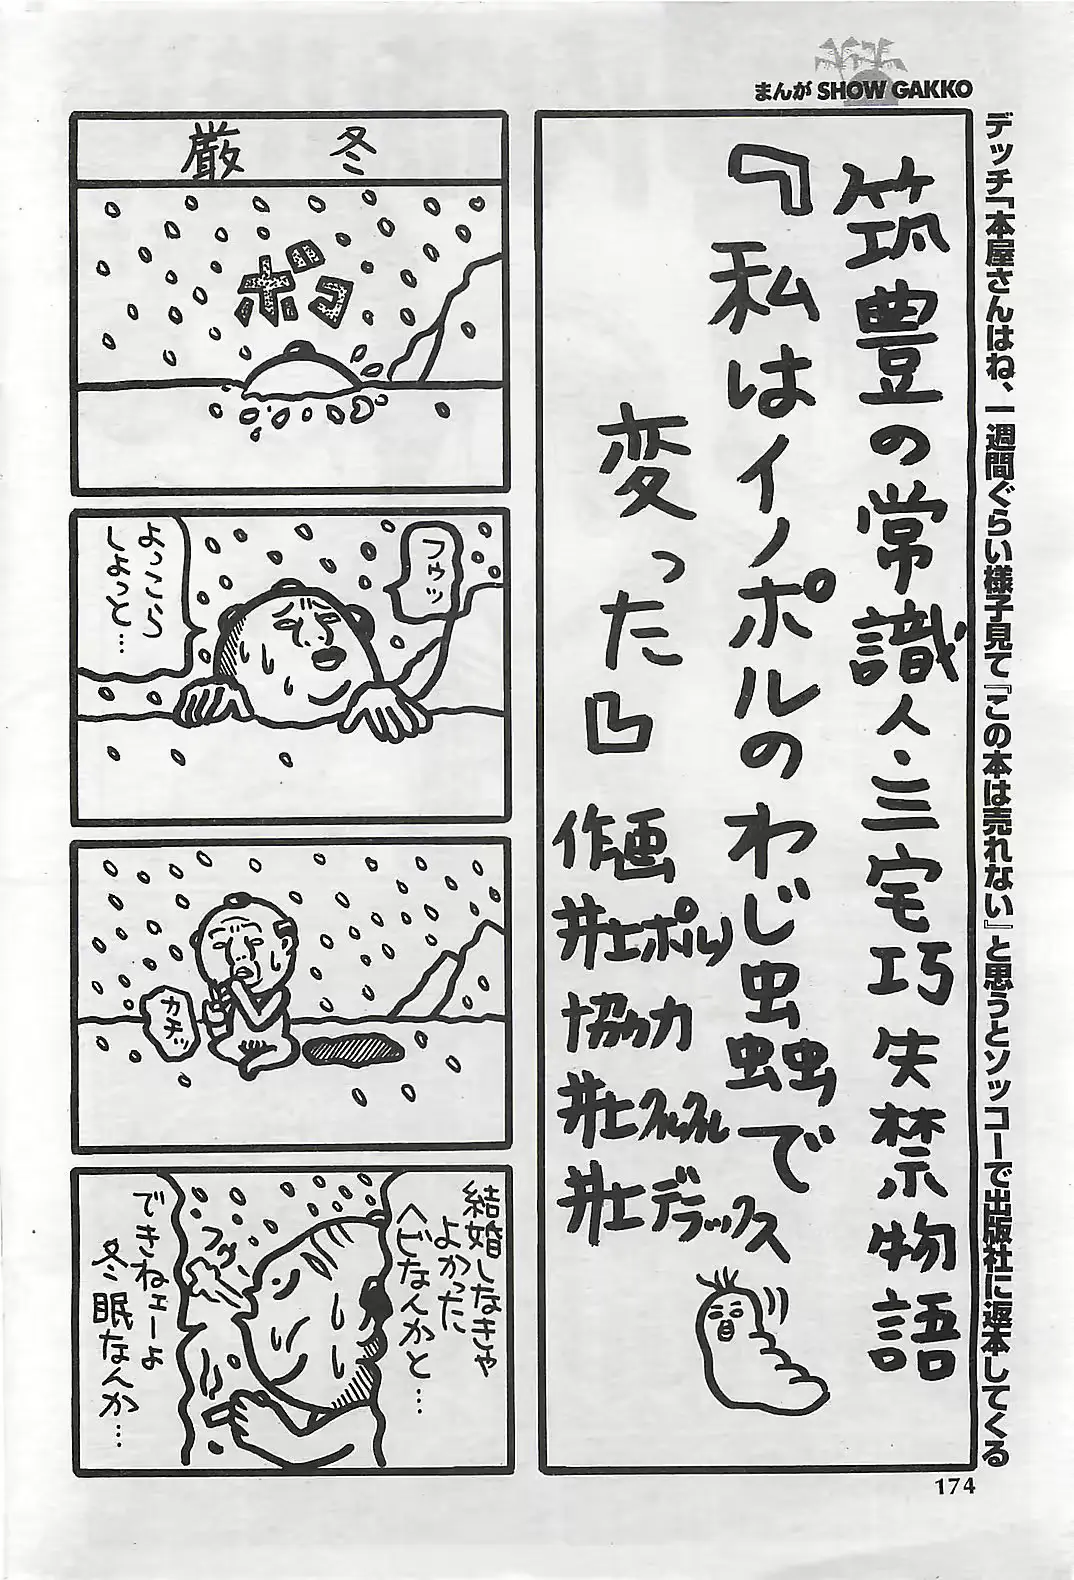 まんが SHOW GAKKO
デッチ「本屋さんはね、一週間ぐらい様子見て『この本は売れない』と思うとソッコーで出版社に返本してくる
筑豊の常識人・三宅巧失禁物語
『私はイノポルのわじ虫蟲で
変った』
作画
井士ポルノ
協力
井士フルフル
井士デラックス
厳冬
ボコ
フゥッ
よっこら
しょっと…
カチッ
結婚しなきゃ
よかった
ヘビなんかと…
フゥ、
できねェーよ
冬眠なんか…
174